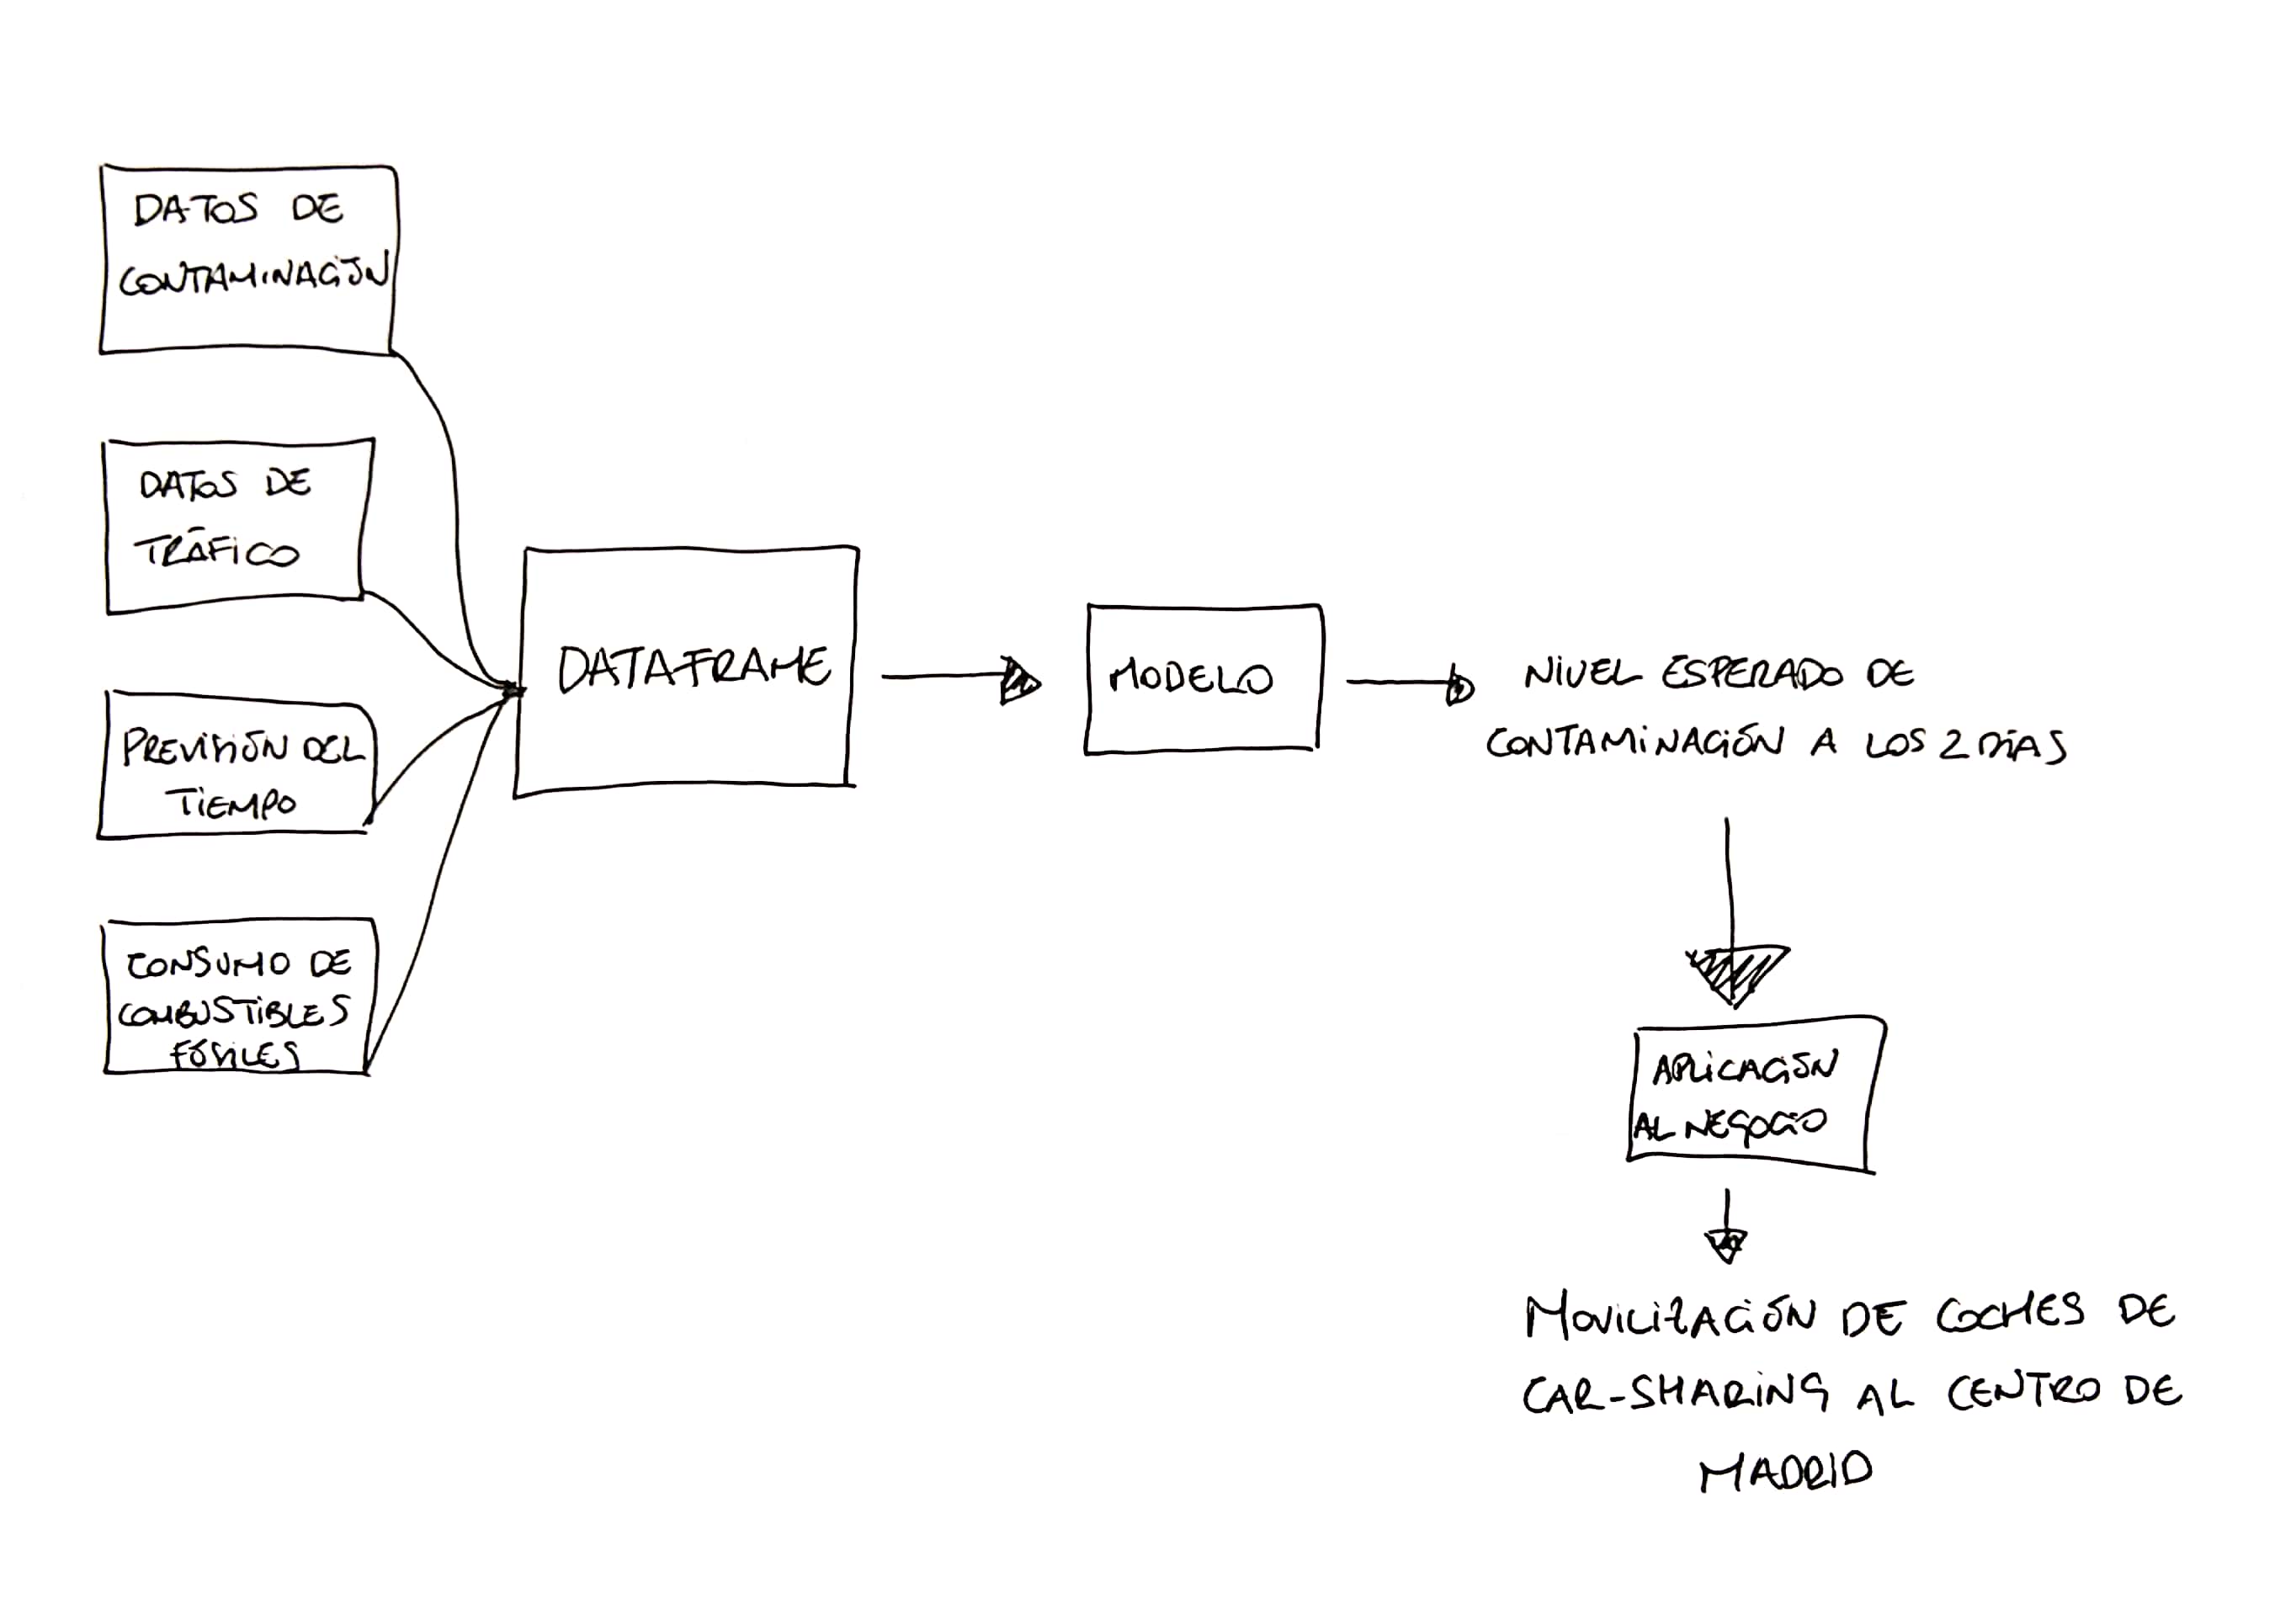 DATOS DE
CONTAMINACIÓN
DATOS DE
TRÁFICO
PREVISIÓN DEL
TIEMPO
CONSUMO DE
COMBUSTIBLES
FÓSILES
DATAFRAME
MODELO
NIVEL ESPERADO DE
CONTAMINACIÓN A LOS 2 DÍAS
APLICACIÓN
AL NEGOCIO
MOVILIZACIÓN DE COCHES DE
CAR-SHARING AL CENTRO DE
MADRID